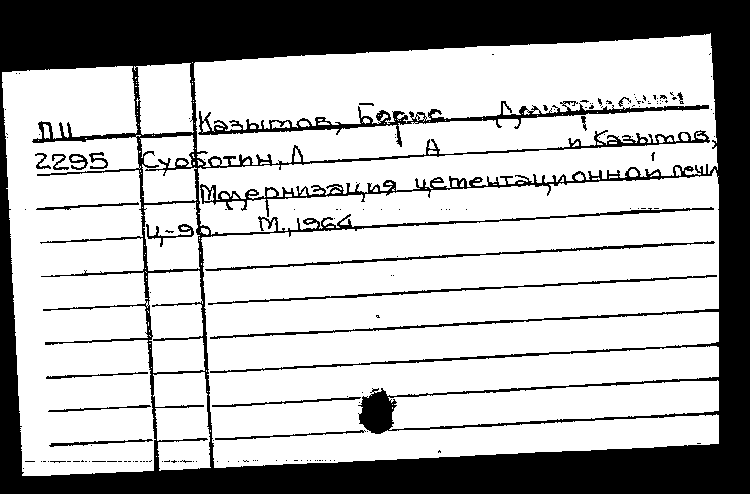 ПЦ Казымов, Борис Дмитриевич
2295 Субботин, Л А и Казымов,
Модернизация цементационной печи
Ц-90. М., 1964.